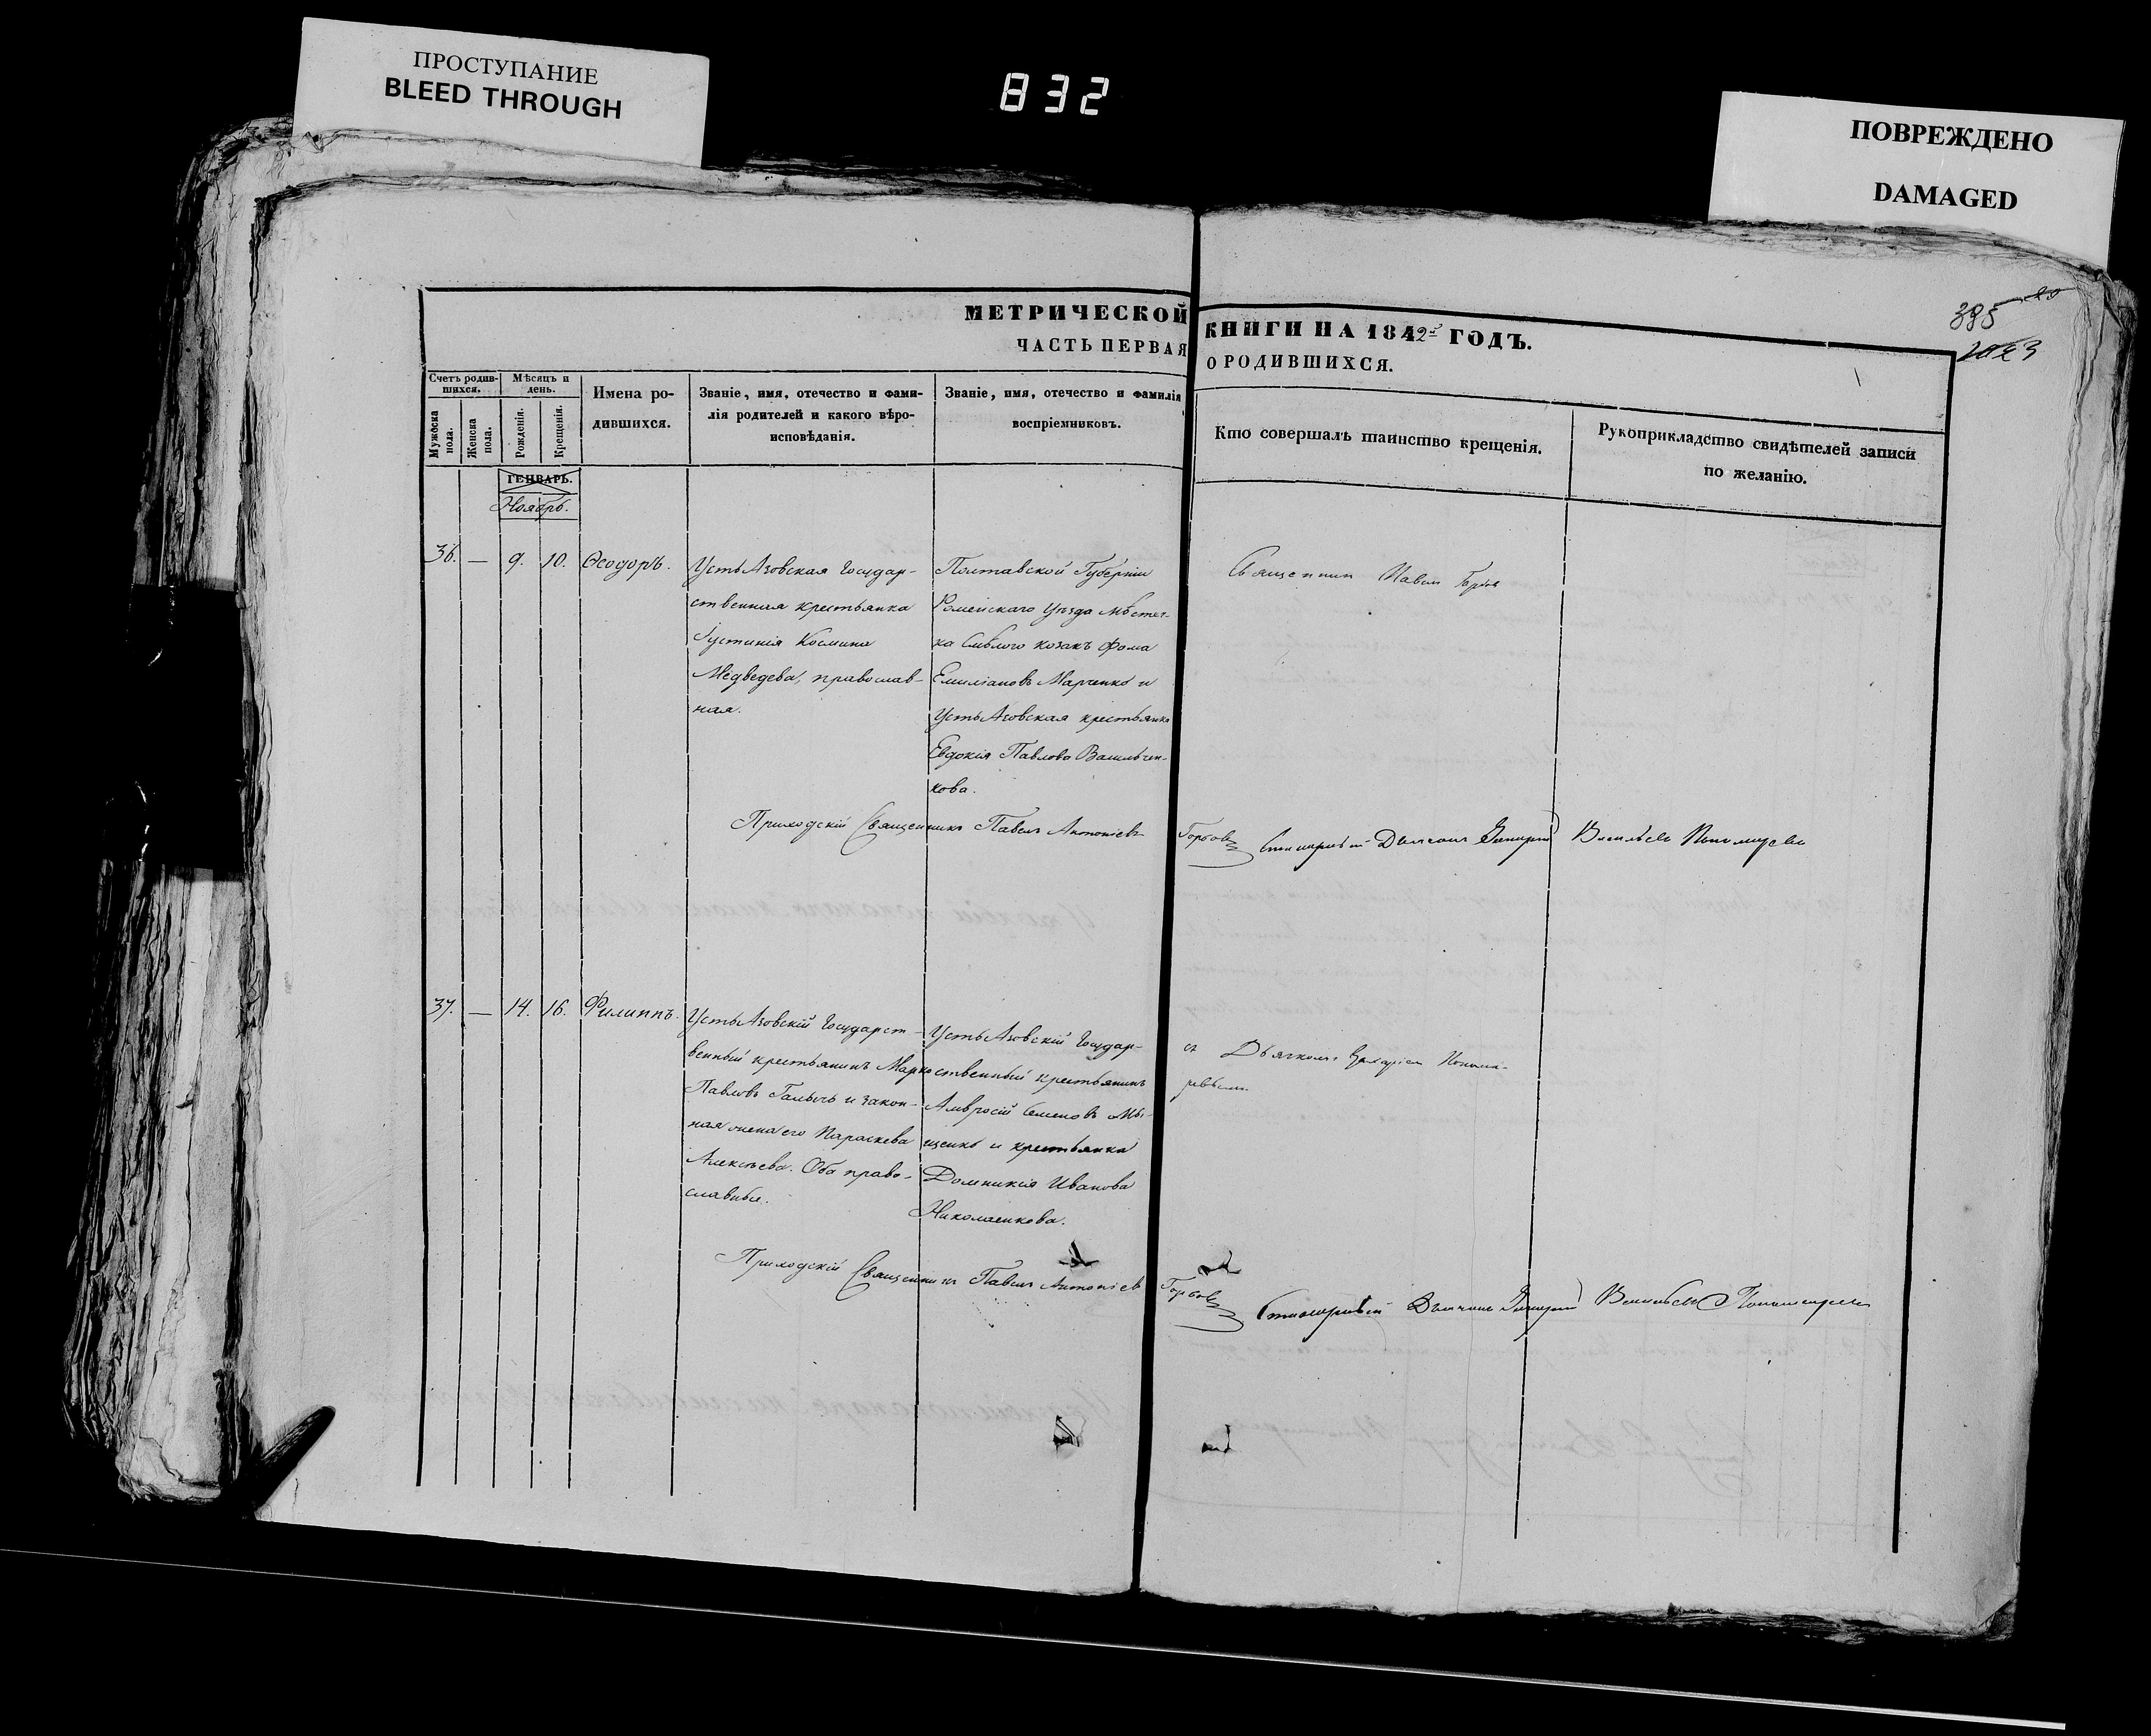 ПРОСТУПАНИЕ
BLEED THROUGH
832
ПОВРЕЖДЕНО
DAMAGED
395
МЕТРИЧЕСКОЙ КНИГИ НА 1842й ГОДЪ.
ЧАСТЬ ПЕРВАЯ О РОДИВШИХСЯ.
Счетъ родив-
шихся.
Мужеска
пола.
Женска
пола.
Мѣсяцъ и
день.
Рожденія.
Крещенія.
Имена ро-
дившихся.
Званіе, имя, отечество и фами-
лія родителей и какого вѣро-
исповѣданія.
Званіе, имя, отечество и фамилія
воспріемниковъ.
Кто совершалъ таинство крещенія.
Рукоприкладство свидѣтелей записи
по желанію.
ГЕНВАРЬ.
Ноябрь.
36. — 9. 10. Ѳеодоръ.
Усть Азовская Государ-
ственная крестьянка
Іустинія Космина
Медведева, православ-
ная.
Полтавской Губерніи
Роменскаго Уѣзда Мѣстеч-
ка Смѣлого козакъ Фома
Емиліановъ Марченко и
Усть Азовская крестьянка
Евдокія Павлова Васильчен-
кова.
Священник Павел
Приходскій Священникъ Павелъ Антоніевъ Горбовъ
Дьячокъ Васильевъ Пономаревъ
37. — 14. 16. Филиппъ.
Усть Азовскій Государст-
венный крестьянинъ Марко
Павловъ Галычъ и закон-
ная жена его Параскева
Алексѣева. Оба право-
славные.
Усть Азовскій Государ-
ственный крестьянинъ
Амвросій Семеновъ Мы-
щенко и крестьянка
Домникія Иванова
Николаенкова.
съ Дьячкомъ Захаріемъ Понома-
ревымъ
Приходскій Священникъ Павелъ Антоніев Горбовъ
Дьячокъ Васильевъ Пономаревъ